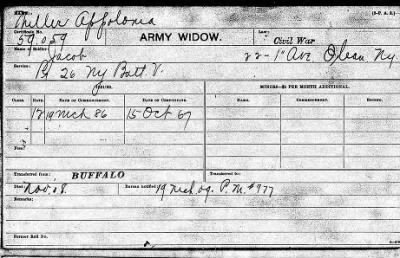 Name.
Miller Appolonia
(3-P. A. S.)
Certificate No.
59.059
ARMY WIDOW.
Law:
Civil War
Name of Soldier:
Jacob
22-1st Ave. Olean Ny.
Service:
B. 26 Ny Batt V.
ISSUES.
MINORS—$2 PER MONTH ADDITIONAL.
CLASS.
RATE.
DATE OF COMMENCEMENT.
DATE OF CERTIFICATE.
NAME.
COMMENCEMENT.
TO EXPIRE.
12
19 Mch 86
15 Oct 67
Fees:
Transferred from:
BUFFALO
Died:
Nov. 08.
Bureau notified:
19 Mch 09. P. M. #977
Remarks:
Former Roll No.